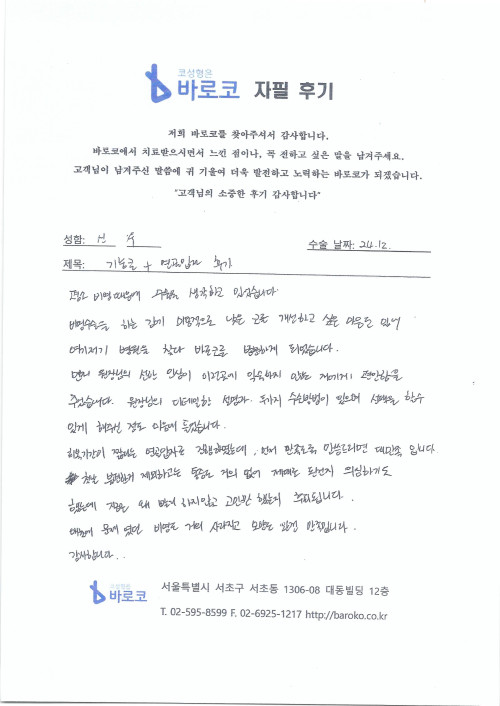 코성형은
바로코 자필 후기
저희 바로코를 찾아주셔서 감사합니다.
바로코에서 치료받으시면서 느낀 점이나, 꼭 전하고 싶은 말을 남겨주세요.
고객님이 남겨주신 말씀에 귀 기울여 더욱 발전하고 노력하는 바로코가 되겠습니다.
"고객님의 소중한 후기 감사합니다"
성함: 수
수술 날짜: 24.12.
제목: 기능코 + 연골입자 후기
평소 비염때문에 수술을 생각하고 있었습니다
비염수술을 하는 김에 미용적으로 낮은 코를 개선하고 싶은 마음도 있어
여기저기 병원을 찾다 바로코를 방문하게 되었습니다.
먼저 원장님의 선한 인상이 이런곳에 익숙하지 않은 저에게 편안함을
주었습니다. 원장님의 디테일한 설명과 두가지 수술방법이 있으며 선택을 할수
있게 해주신 점도 마음에 들었습니다.
회복기간이 짧다는 연골입자로 진행하였는데, 먼저 만족도를 말씀드리면 대만족 입니다.
불편한거 제외하고는 통증도 거의 없어 제대로 된건지 의심하기도
했는데 지금은 왜 빨리 하지않고 고민만 했는지 후회됩니다.
문제 였던 비염도 거의 사라지고 모양도 만족입니다.
감사합니다..
코성형은
바로코
서울특별시 서초구 서초동 1306-08 대동빌딩 12층
T. 02-595-8599 F. 02-6925-1217 http://baroko.co.kr